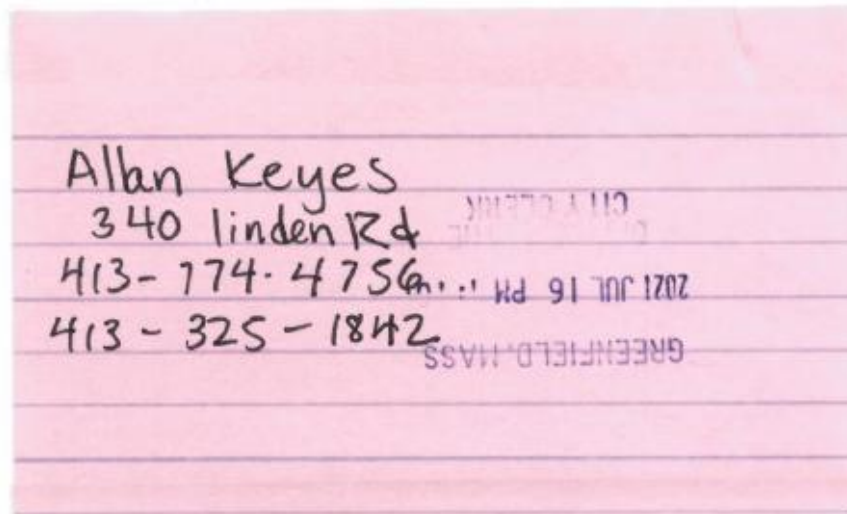 Allan Keyes
340 linden Rd
413-774-4756
413-325-1842
GREENFIELD, MASS
2021 JUL 16 PM
CITY CLERK